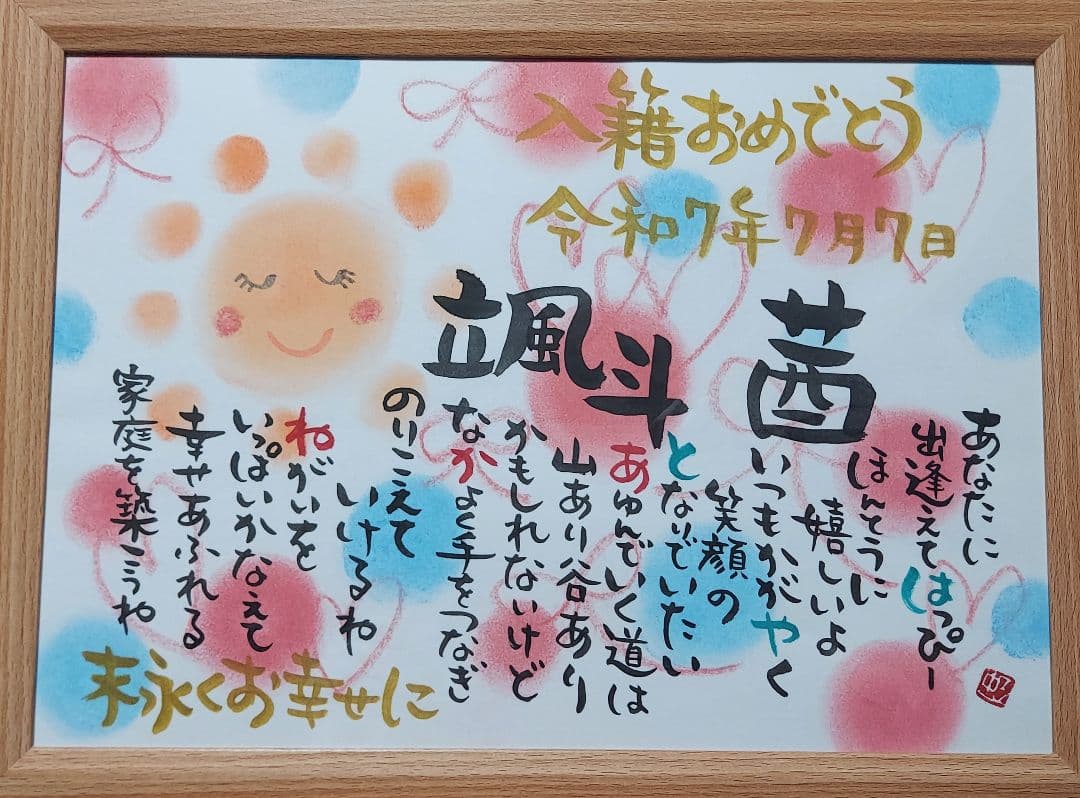 入籍おめでとう
令和7年7月7日
颯斗 茜
あなたに
出逢えてはっぴー
ほんとうに
嬉しいよ
いつもかがやく
笑顔の
となりでいたい
あゆんでいく道は
山あり谷あり
かもしれないけど
なかよく手をつなぎ
のりこえて
いけるね
ねがいを
いっぱいかなえて
幸せあふれる
家庭を築こうね
末永くお幸せに